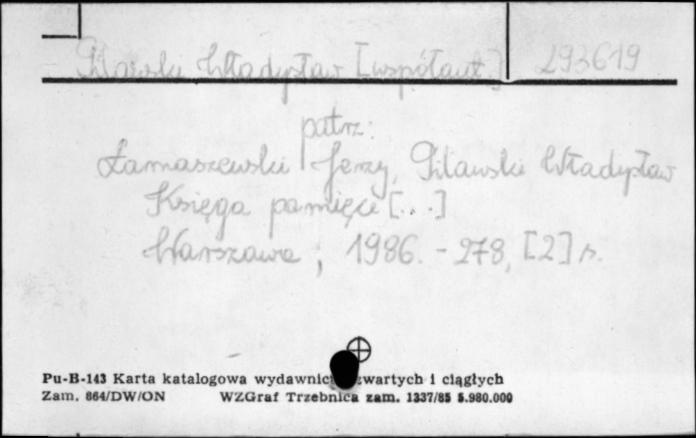 Pilawski Władysław [współaut] 293619
patrz:
Łamaszewski Jerzy, Pilawski Władysław
Księga pamięci [...]
Warszawa, 1986. - 278, [2] s.
Pu-B-143 Karta katalogowa wydawnic zwartych i ciągłych
Zam. 864/DW/ON WZGraf Trzebnica zam. 1337/85 5.980.000